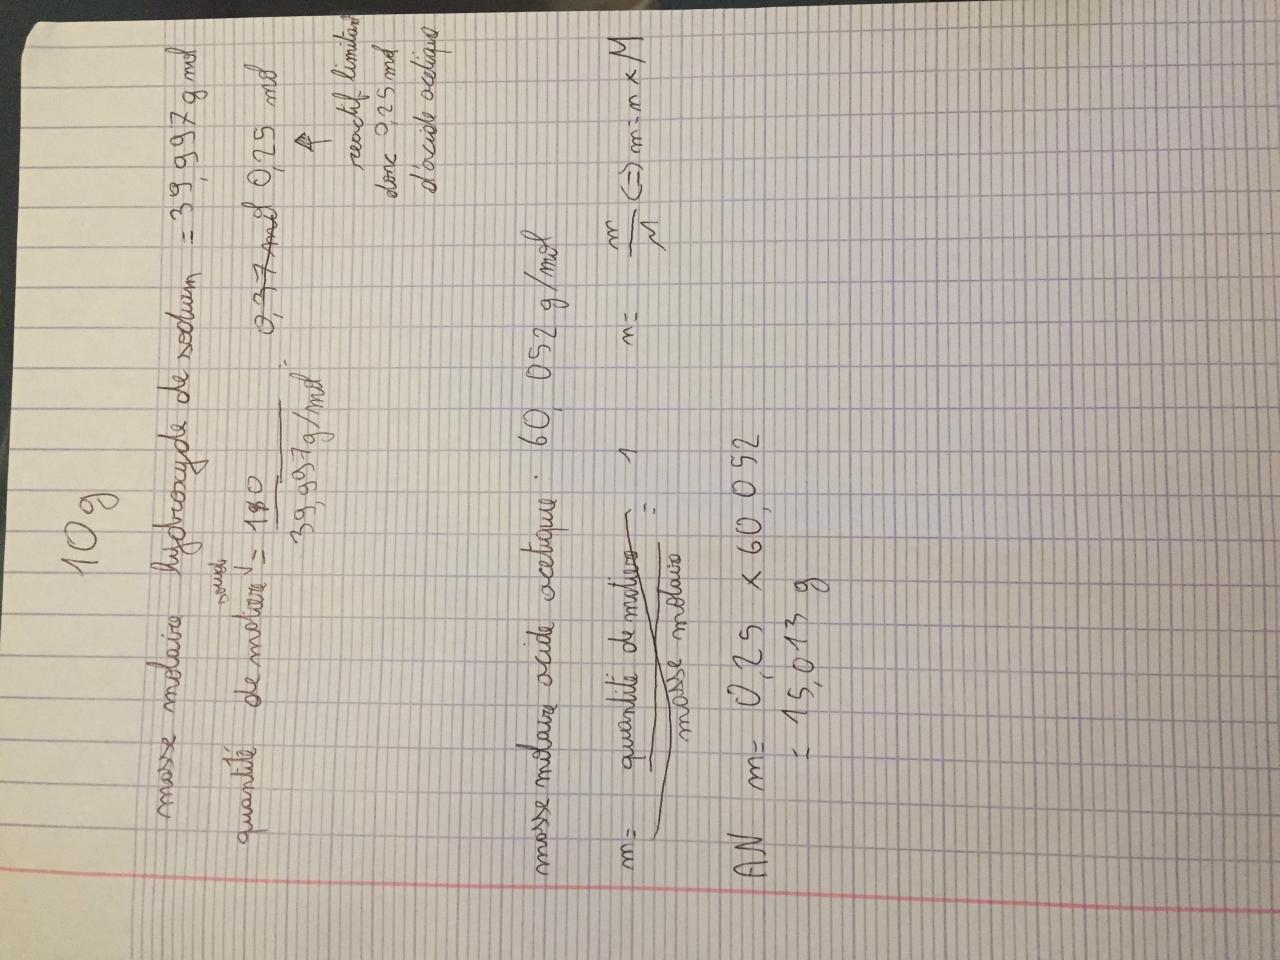 10g
masse molaire hydroxyde de sodium = 39,997 g mol
soude
quantité de matière = 10 0,37 mol 0,25 mol
39,997g/mol
↑
reactif limitant
donc 0,25 mol
d'acide acetique
masse molaire acide acetique : 60,052 g/mol
m = quantité de matière = 1 n = m (=) m = n × M
masse molaire M
AN m = 0,25 × 60,052
= 15,013 g